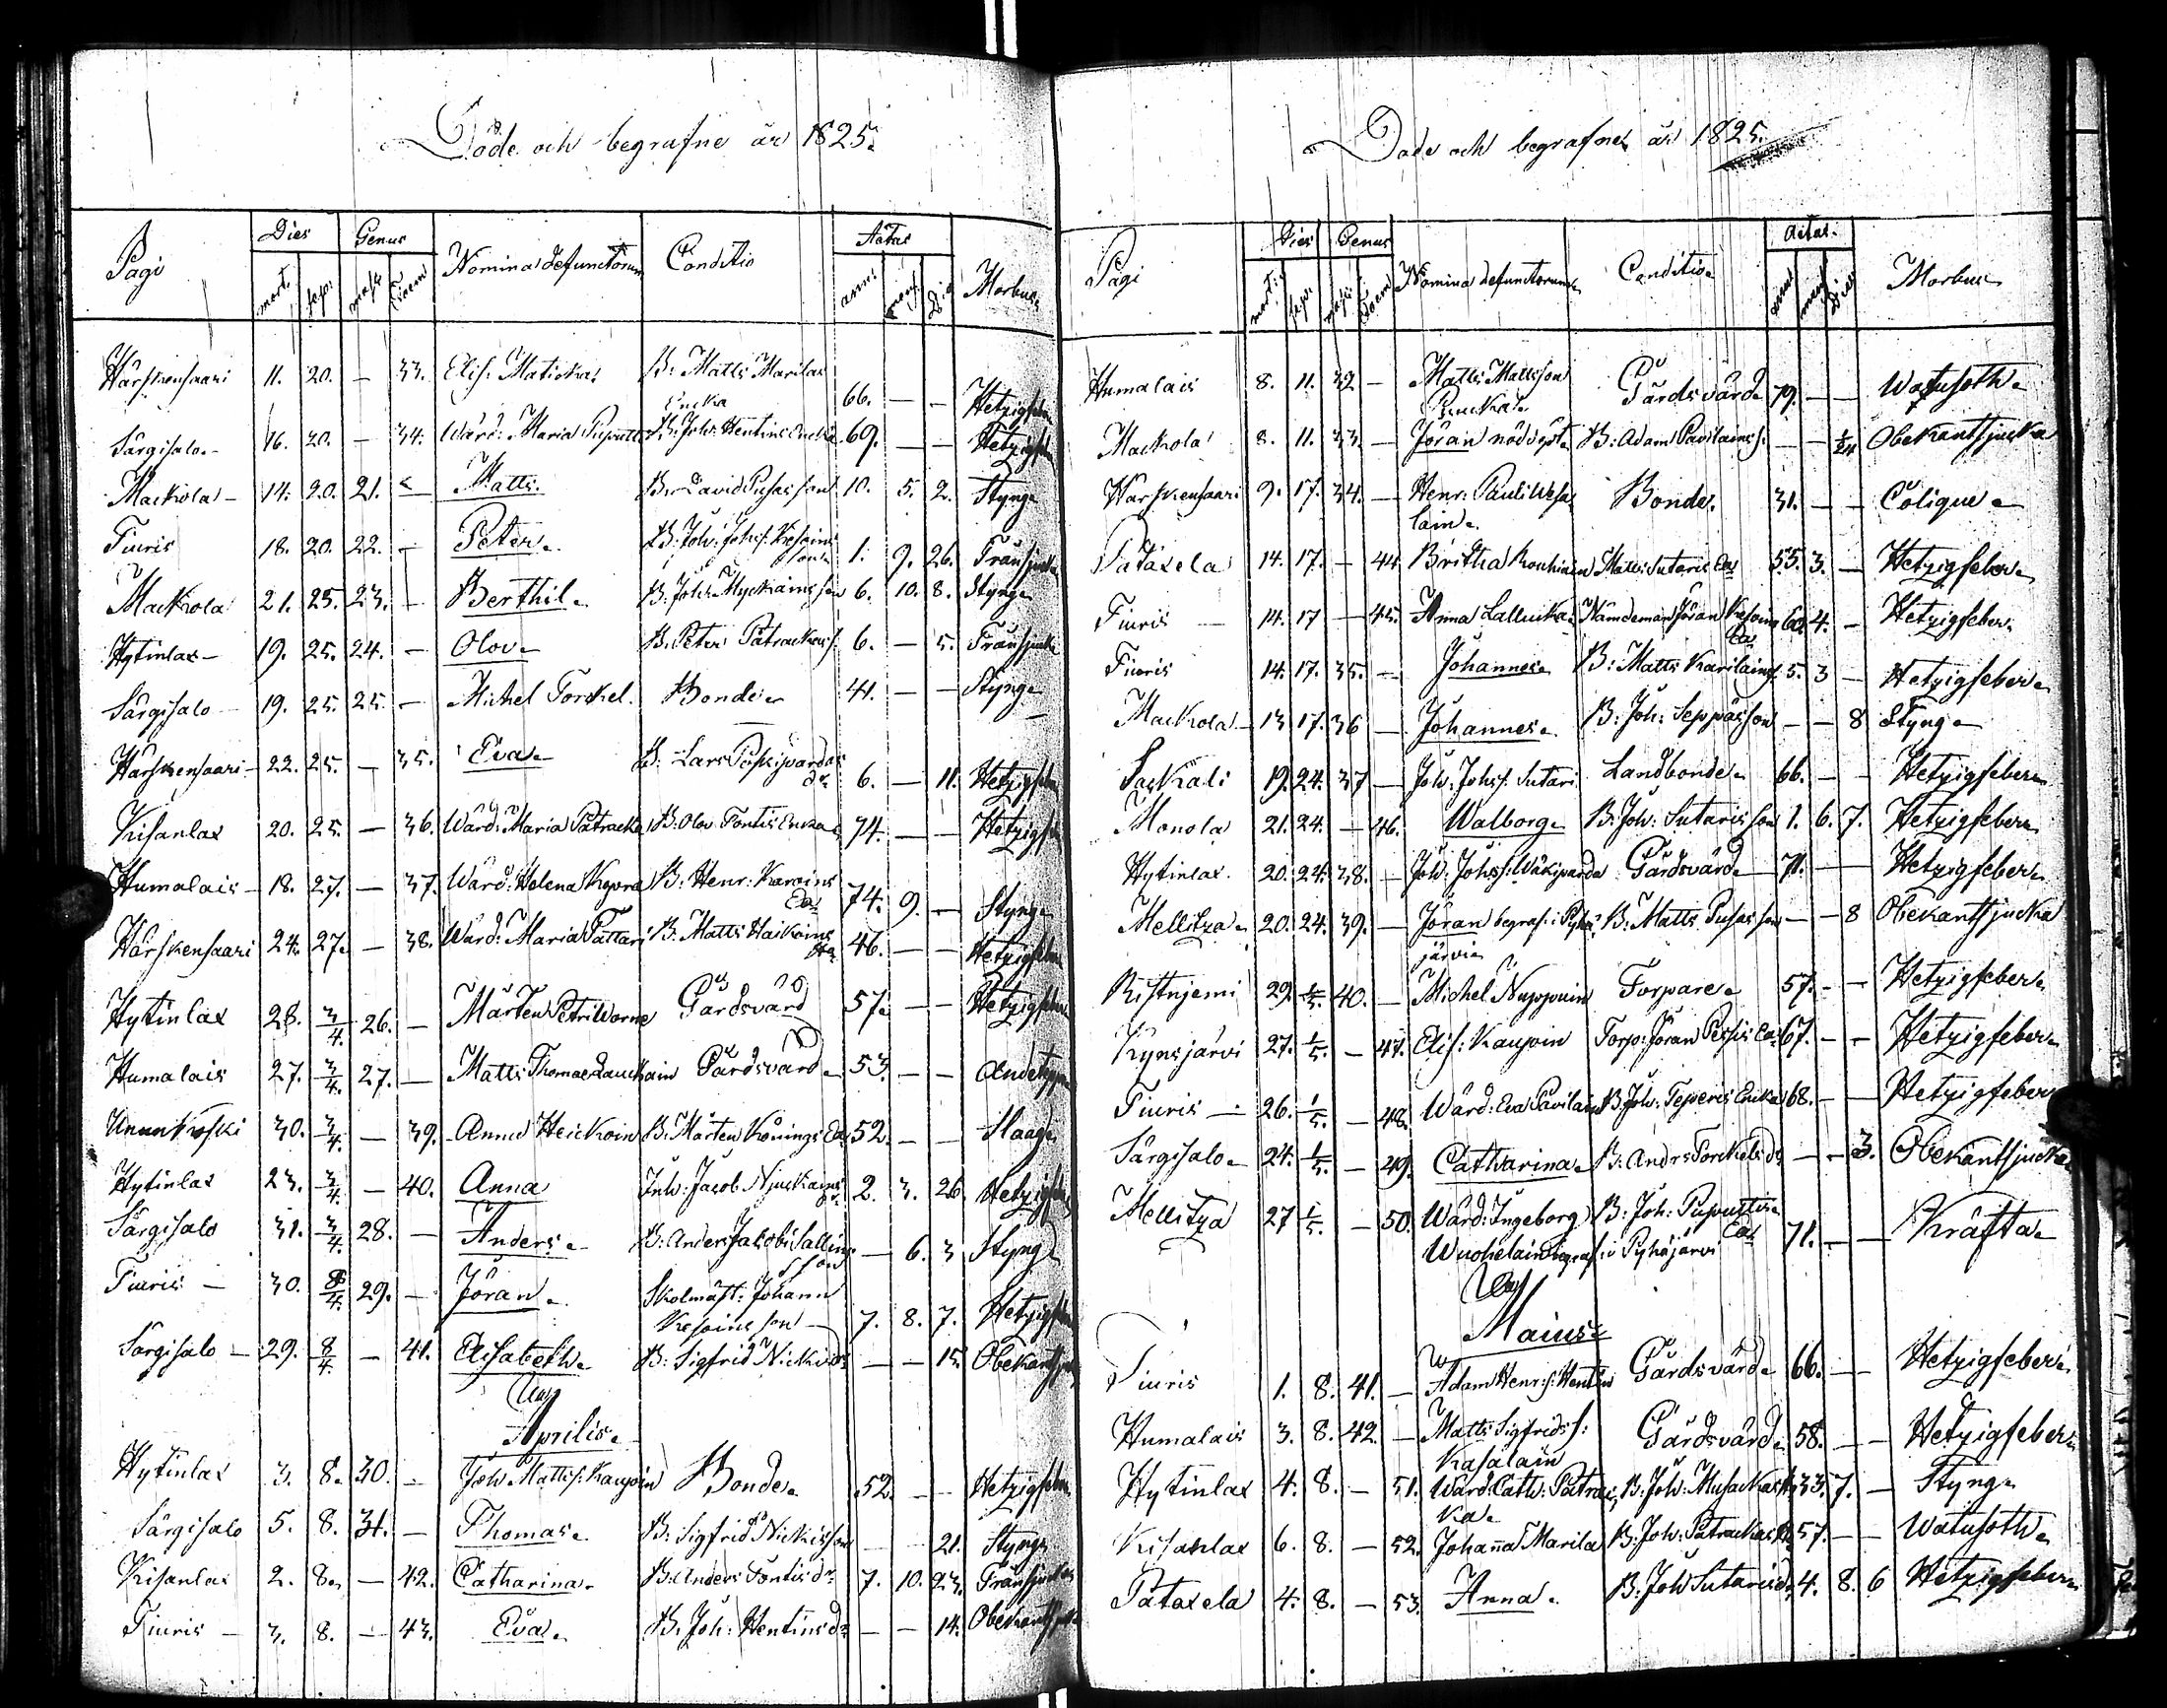 Döde och begrafne år 1825.
Pagi Dies Genus Nomina defunctorum Conditio Aetas Morbus
mort. sep. mask. foem. ann. mens. dies
Härskensaari 11. 20. — 33. Elis: Matikai B: Matts Marilas
Encka 66. — — Hetzigfeber
Särgisalo 16. 20. — 34. Wärd: Maria Pupputti B: Joh: Hentins Encka 69. — — Hetzigfeber
Mackola 14. 20. 21. — Matts. B. David Pusas son 10. 5. 2. Styng
Tiuris 18. 20. 22. — Peter B: Joh: Johs: Kesoins
son 1. 9. 26. Trånsjuka
Mackola 21. 25. 23. — Berthil B: Joh: Myckäins son 6. 10. 8. Styng
Hytinlax 19. 25. 24. — Olov B. Peter Pätrackas s. 6. — 5. Trånsjuka
Särgisalo 19. 25. 25. — Michel Torckel. Bonde 41. — — Styng
Härskensaari 22. 25. — 35. Eva B: Lars
dr 6. — 11. Hetzigfeber
Kisanlax 20. 25. — 36. Wärd: Maria Pätracka B: Olov Tontis Encka 74. — — Hetzigfeber
Humalais 18. 27. — 37. Wärd: Helena Kgora B: Henr: Karoins
Ea 74. 9. — Styng
Härskensaari 24. 27. — 38. Wärd: Maria Tattari B. Matts Haikoins
46. — — Hetzigfeber
Hytinlax 28. 3/4 26. — Mårten Petri Worne Gårdsvärd 57. — — Hetzigfeber
Humalais 27. 3/4. 27. — Matts Thomae Lauckain Gårdsvärd 53. — — Andetäppa
Unnunkoski 30. 3/4. — 39. Anna Heickoin B. Mårten Könings Ea 52. — — Slag
Hytinlax 23. 3/4. — 40. Anna Inh: Jacob Njuskains
dr 2. 3. 26 Hetzigfeber
Särgisalo 31. 3/4. 28. — Anders B: Anders Jakobs Sallins
son — 6. 3 Styng
Tiuris 30. 8/4. 29. — Jöran Skolmäst: Johann
Kesoins son 7. 8. 7. Hetzigfeber
Särgisalo 29. 8/4. — 41. Elisabeth B: Sigfrid Nickis dr — — 15. Obekant sjuka
Aprilis
Hytinlax 3. 8. 30. — Joh: Mattss: Kaupoin Bonde 52. — — Hetzigfeber
Särgisalo 5. 8. 31. — Thomas B: Sigfrid Nickis son — — 21. Styng
Kisanlax 2. 8. — 42. Catharina B: Anders Tontis dr 7. 10. 23. Trånsjuka
Tiuris 3. 8. — 43. Eva B. Joh: Hentins dr — — 14. Obekant sjuka
Döde och begrafne år 1825.
Pagi Dies Genus Nomina defunctorum Conditio Aetas. Morbus
mort. sep. mask. foem. ann. mens. Dies
Humalais 8. 11. 32 — Matts Mattsson
Ruckale Gårdsvärd 79. — — Watusoth
Mackola 8. 11. 33. — Jöran nöddöpt B: Adam Pavilains s. — — 1/24 Obekant sjucka
Härskensaari 9. 17. 34. — Henr: Pauli Wesa
lain Bonde 31. — — Colique
Pataxela 14. 17. — 44. Britha Rouhiain Matts Sutaris Ea 55. 3. — Hetzigfeber
Tiuris 14. 17 — 45. Anna Lallucka Nämdeman Jöran Kesoins
Ea 60. 4. — Hetzigfeber
Tiuris 14. 17. 35. — Johannes B: Matts Karilains s. 5. 3 — Hetzigfeber
Mackola 13 17. 36 — Johannes B: Joh: Seppäs son — — 8 Styng
Sackali 19. 24. 37 — Joh: Johs s. Sutari Landbonde 66. — — Hetzigfeber
Monola 21. 24. — 46. Walborg B: Joh: Sutaris 1. 6. 7. Hetzigfeber
Hytinlax 20. 24. 38. — Joh: Johs s: Wäkiparda Gårdsvärd 71. — — Hetzigfeber
Mellitza 20. 24. 39. — Jöran begraf: i Pyhä- B: Matts Pusas son — — 8 Obekant sjucka
järvi
Ristnjemi 29. 1/5. 40. — Michel Nuppuin Torpare 57. — — Hetzigfeber
Kynsjärvi 27. 1/5. — 47. Elis: Kaupoin Torp: Jöran Pessis Ea 67. — — Hetzigfeber
Tiuris 26. 1/5. — 48. Wärd: Eva Pavilain B: Joh: Teperis Encka 68. — — Hetzigfeber
Särgisalo 24. 1/5. — 49. Catharina B: Anders Torckels dr — — 3. Obekant sjucka
Mellitza 27 1/5. — 50. Wärd: Ingeborg B: Joh: Pupputtis
Wuohelain begraf: i Pyhäjärvi Ea 71. — — Kräfta
Maius
Tiuris 1. 8. 41. — Adam Henr: s: Hentin Gårdsvärd 66. — — Hetzigfeber
Humalais 3. 8. 42. — Matts Sigfrids s:
Kasalain Gårdsvärd 58. — — Hetzigfeber
Hytinlax 4. 8. — 51. Wärd: Cath: Pätrac-
ka B: Joh: Musackas 33. 7. — Styng
Kisanlax 6. 8. — 52. Johanna Marila B: Joh: Pätrackas 57. — — Watusoth
Pataxela 4. 8. — 53. Anna B: Joh Sutaris dr 4. 8. 6 Hetzigfeber